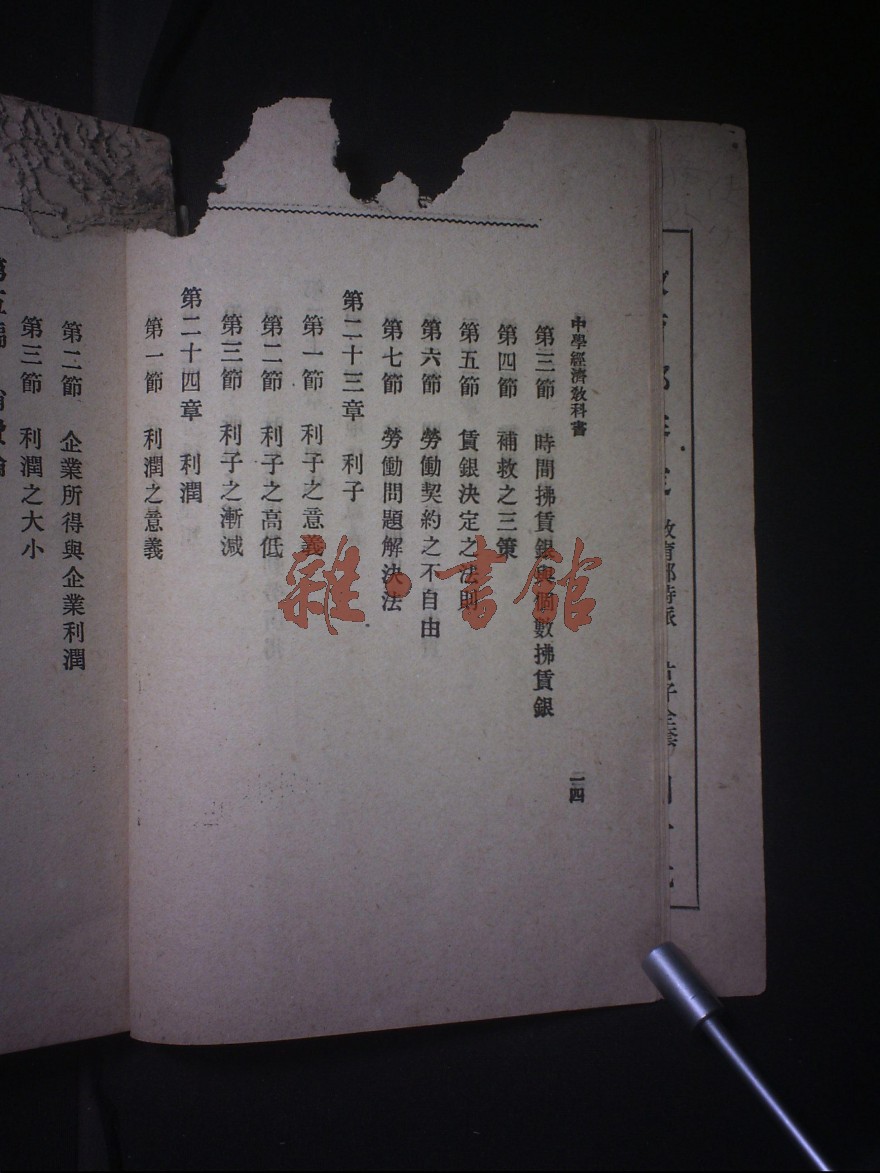 中學經濟敎科書
一四
第三節 時間拂賃銀與個數拂賃銀
第四節 補救之三策
第五節 賃銀決定之法則
第六節 勞働契約之不自由
第七節 勞働問題解決法
第二十三章 利子
第一節 利子之意義
第二節 利子之高低
第三節 利子之漸減
第二十四章 利潤
第一節 利潤之意義
第二節 企業所得與企業利潤
第三節 利潤之大小
雜·書館
敎育部特派